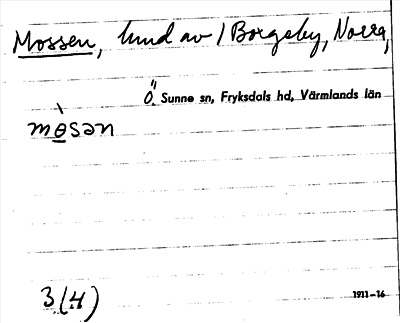 Mossen, hmd av / Borgeby, Norra,
Ö. Sunne sn, Fryksdals hd, Värmlands län
mòsən
3(4)
1911-16